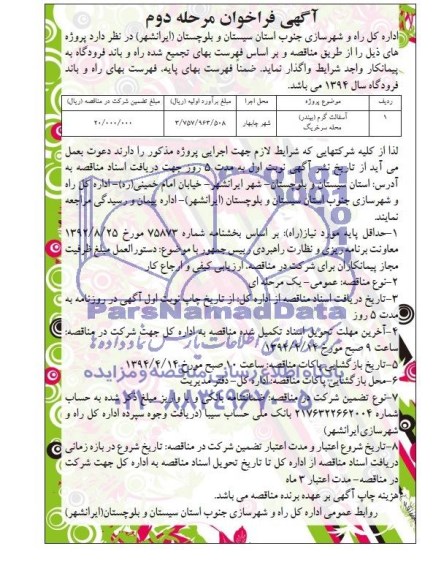 آگهی فراخوان مرحله دوم
اداره کل راه و شهرسازی جنوب استان سیستان و بلوچستان (ایرانشهر) در نظر دارد پروژه
های ذیل را از طریق مناقصه و بر اساس فهرست بهای تجمیع شده راه و باند فرودگاه به
پیمانکار واجد شرایط واگذار نماید. ضمنا فهرست بهای پایه، فهرست بهای راه و باند
فرودگاه سال ۱۳۹۴ می باشد.
ردیف موضوع پروژه محل اجرا مبلغ برآورد اولیه (ریال) مبلغ تضمین شرکت در مناقصه (ریال)
۱ آسفالت گرم (بیندر) محله سرخریگ شهر چابهار ۳/۷۵۷/۹۶۳/۵۰۸ ۲۰/۰۰۰/۰۰۰
لذا از کلیه شرکتهایی که شرایط لازم جهت اجرایی پروژه مذکور را دارند دعوت بعمل
می آید از تاریخ نشر آگهی نوبت اول به مدت ۵ روز جهت دریافت اسناد مناقصه به
آدرس: استان سیستان و بلوچستان- شهر ایرانشهر- خیابان امام خمینی(ره)- اداره کل راه
و شهرسازی جنوب استان سیستان و بلوچستان (ایرانشهر) - اداره پیمان و رسیدگی مراجعه
نمایند.
۱-حداقل پایه مورد نیاز(راه): بر اساس بخشنامه شماره ۷۵۸۷۳ مورخ ۱۳۹۲/۸/۲۵
معاونت برنامه ریزی و نظارت راهبردی رییس جمهور با موضوع: دستورالعمل مبلغ ظرفیت
مجاز پیمانکاران برای شرکت در مناقصه، ارزیابی کیفی و ارجاع کار
۲-نوع مناقصه: عمومی- یک مرحله ای
۳-تاریخ دریافت اسناد مناقصه از اداره کل: از تاریخ چاپ نوبت اول آگهی در روزنامه به
مدت ۵ روز
۴-آخرین مهلت تحویل اسناد تکمیل شده مناقصه به اداره کل جهت شرکت در مناقصه:
ساعت ۹ صبح مورخ ۱۳۹۴/۴/۱۴
۵-تاریخ بازگشایی پاکات مناقصه: ساعت ۱۰ صبح مورخ ۱۳۹۴/۴/۱۴
۶-محل بازگشایی پاکات مناقصه: اداره کل- دفتر مدیریت
۷-نوع تضمین شرکت در مناقصه: ضمانتنامه بانکی یا واریز مبلغ ذکر شده به حساب
شماره ۲۱۷۶۳۲۲۶۶۲۰۰۴ بانک ملی حساب سیبا (دریافت وجوه سپرده اداره کل راه و
شهرسازی ایرانشهر)
۸-تاریخ شروع اعتبار و مدت اعتبار تضمین شرکت در مناقصه: تاریخ شروع در بازه زمانی
دریافت اسناد مناقصه از اداره کل تا تاریخ تحویل اسناد مناقصه به اداره کل جهت شرکت
در مناقصه- مدت اعتبار ۳ ماه
هزینه چاپ آگهی بر عهده برنده مناقصه می باشد.
روابط عمومی اداره کل راه و شهرسازی جنوب استان سیستان و بلوچستان(ایرانشهر)
ParsNamadData
پایگاه اطلاع رسانی مناقصه و مزایده